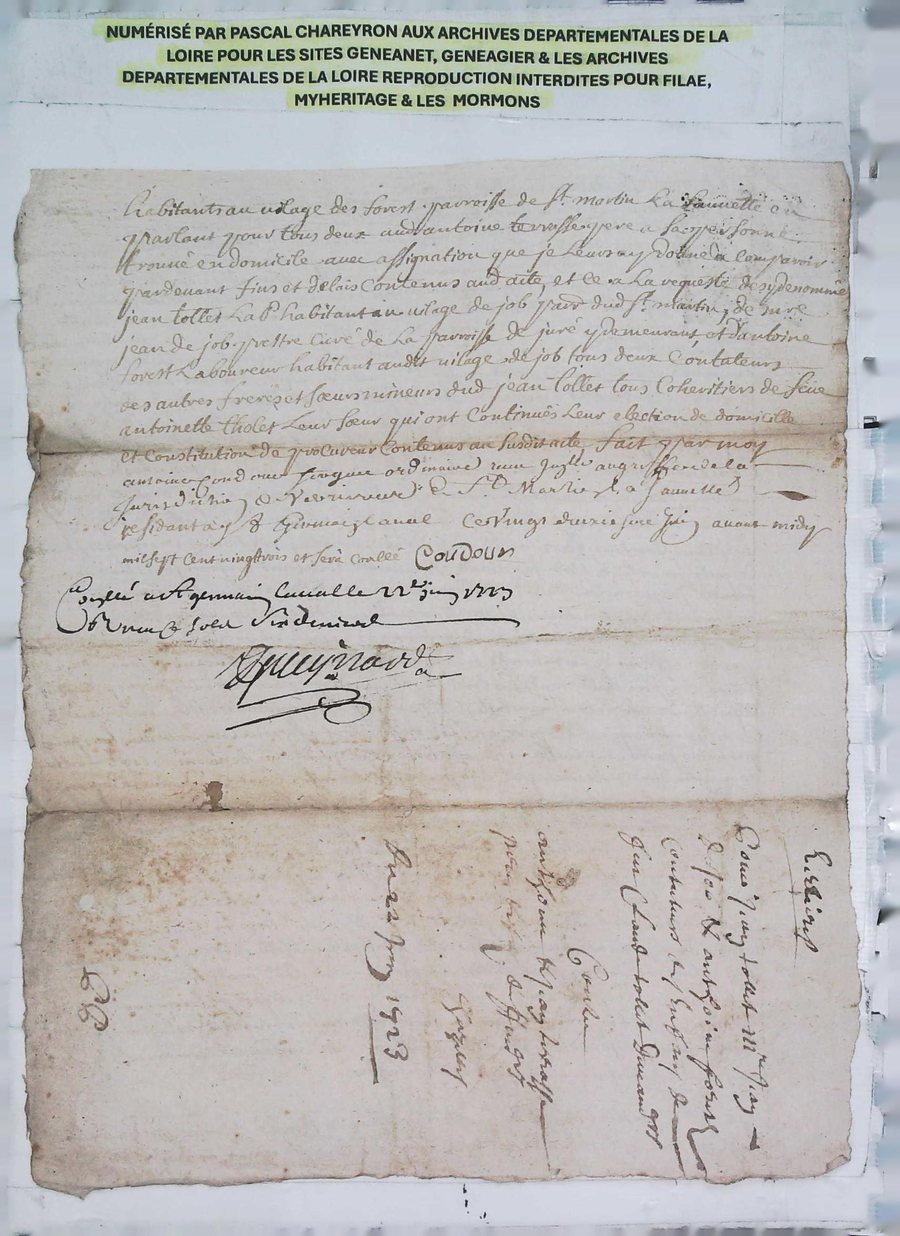 NUMÉRISÉ PAR PASCAL CHAREYRON AUX ARCHIVES DEPARTEMENTALES DE LA
LOIRE POUR LES SITES GENEANET, GENEAGIER & LES ARCHIVES
DEPARTEMENTALES DE LA LOIRE REPRODUCTION INTERDITES POUR FILAE,
MYHERITAGE & LES MORMONS
habitants au vilage des forest parroisse de St martin La Sauvetté en
parlant pour tous deux aud antoine terrasse pere a sa personne
trouvé en domicile avec assignation que je leur ay donné a comparoir
pardevant fins et delais contenus aud acte, et ce a La requeste de sydenommé
jean tollet La Br habitant au vilage de job parr dud St martin, de mre
jean de job prestre Curé de La parroisse de juré y demeurant, et d'antoine
forest Laboureur habitant audit vilage de job tous deux Curateurs
des autres freres et sœurs mineurs dud jean tollet tous Coheritiers de feue
antoinette tholet Leur sœur qui ont Continués Leur election de domicille
et Constitution de procureur Contenus au susdit acte fait par moy
antoine Coudour sergent ordinaire
jurisdiction de St Martin la Sauvetté
residant a St Germain Laval Ce vingt deuxiesme juin avant midy
mil sept cent vingt trois et sera Conllé Coudour
Conllé a St germain Laval le 22e juin 1723
Reynard
Exploit
Pour jean tollet Mre jean
de job & anthoine forest
curateurs des enfans de
feu Claude tollet Demandeurs
Contre
anthoine & jean terrasse
pere et fils deffendeurs
Du 22 juin 1723